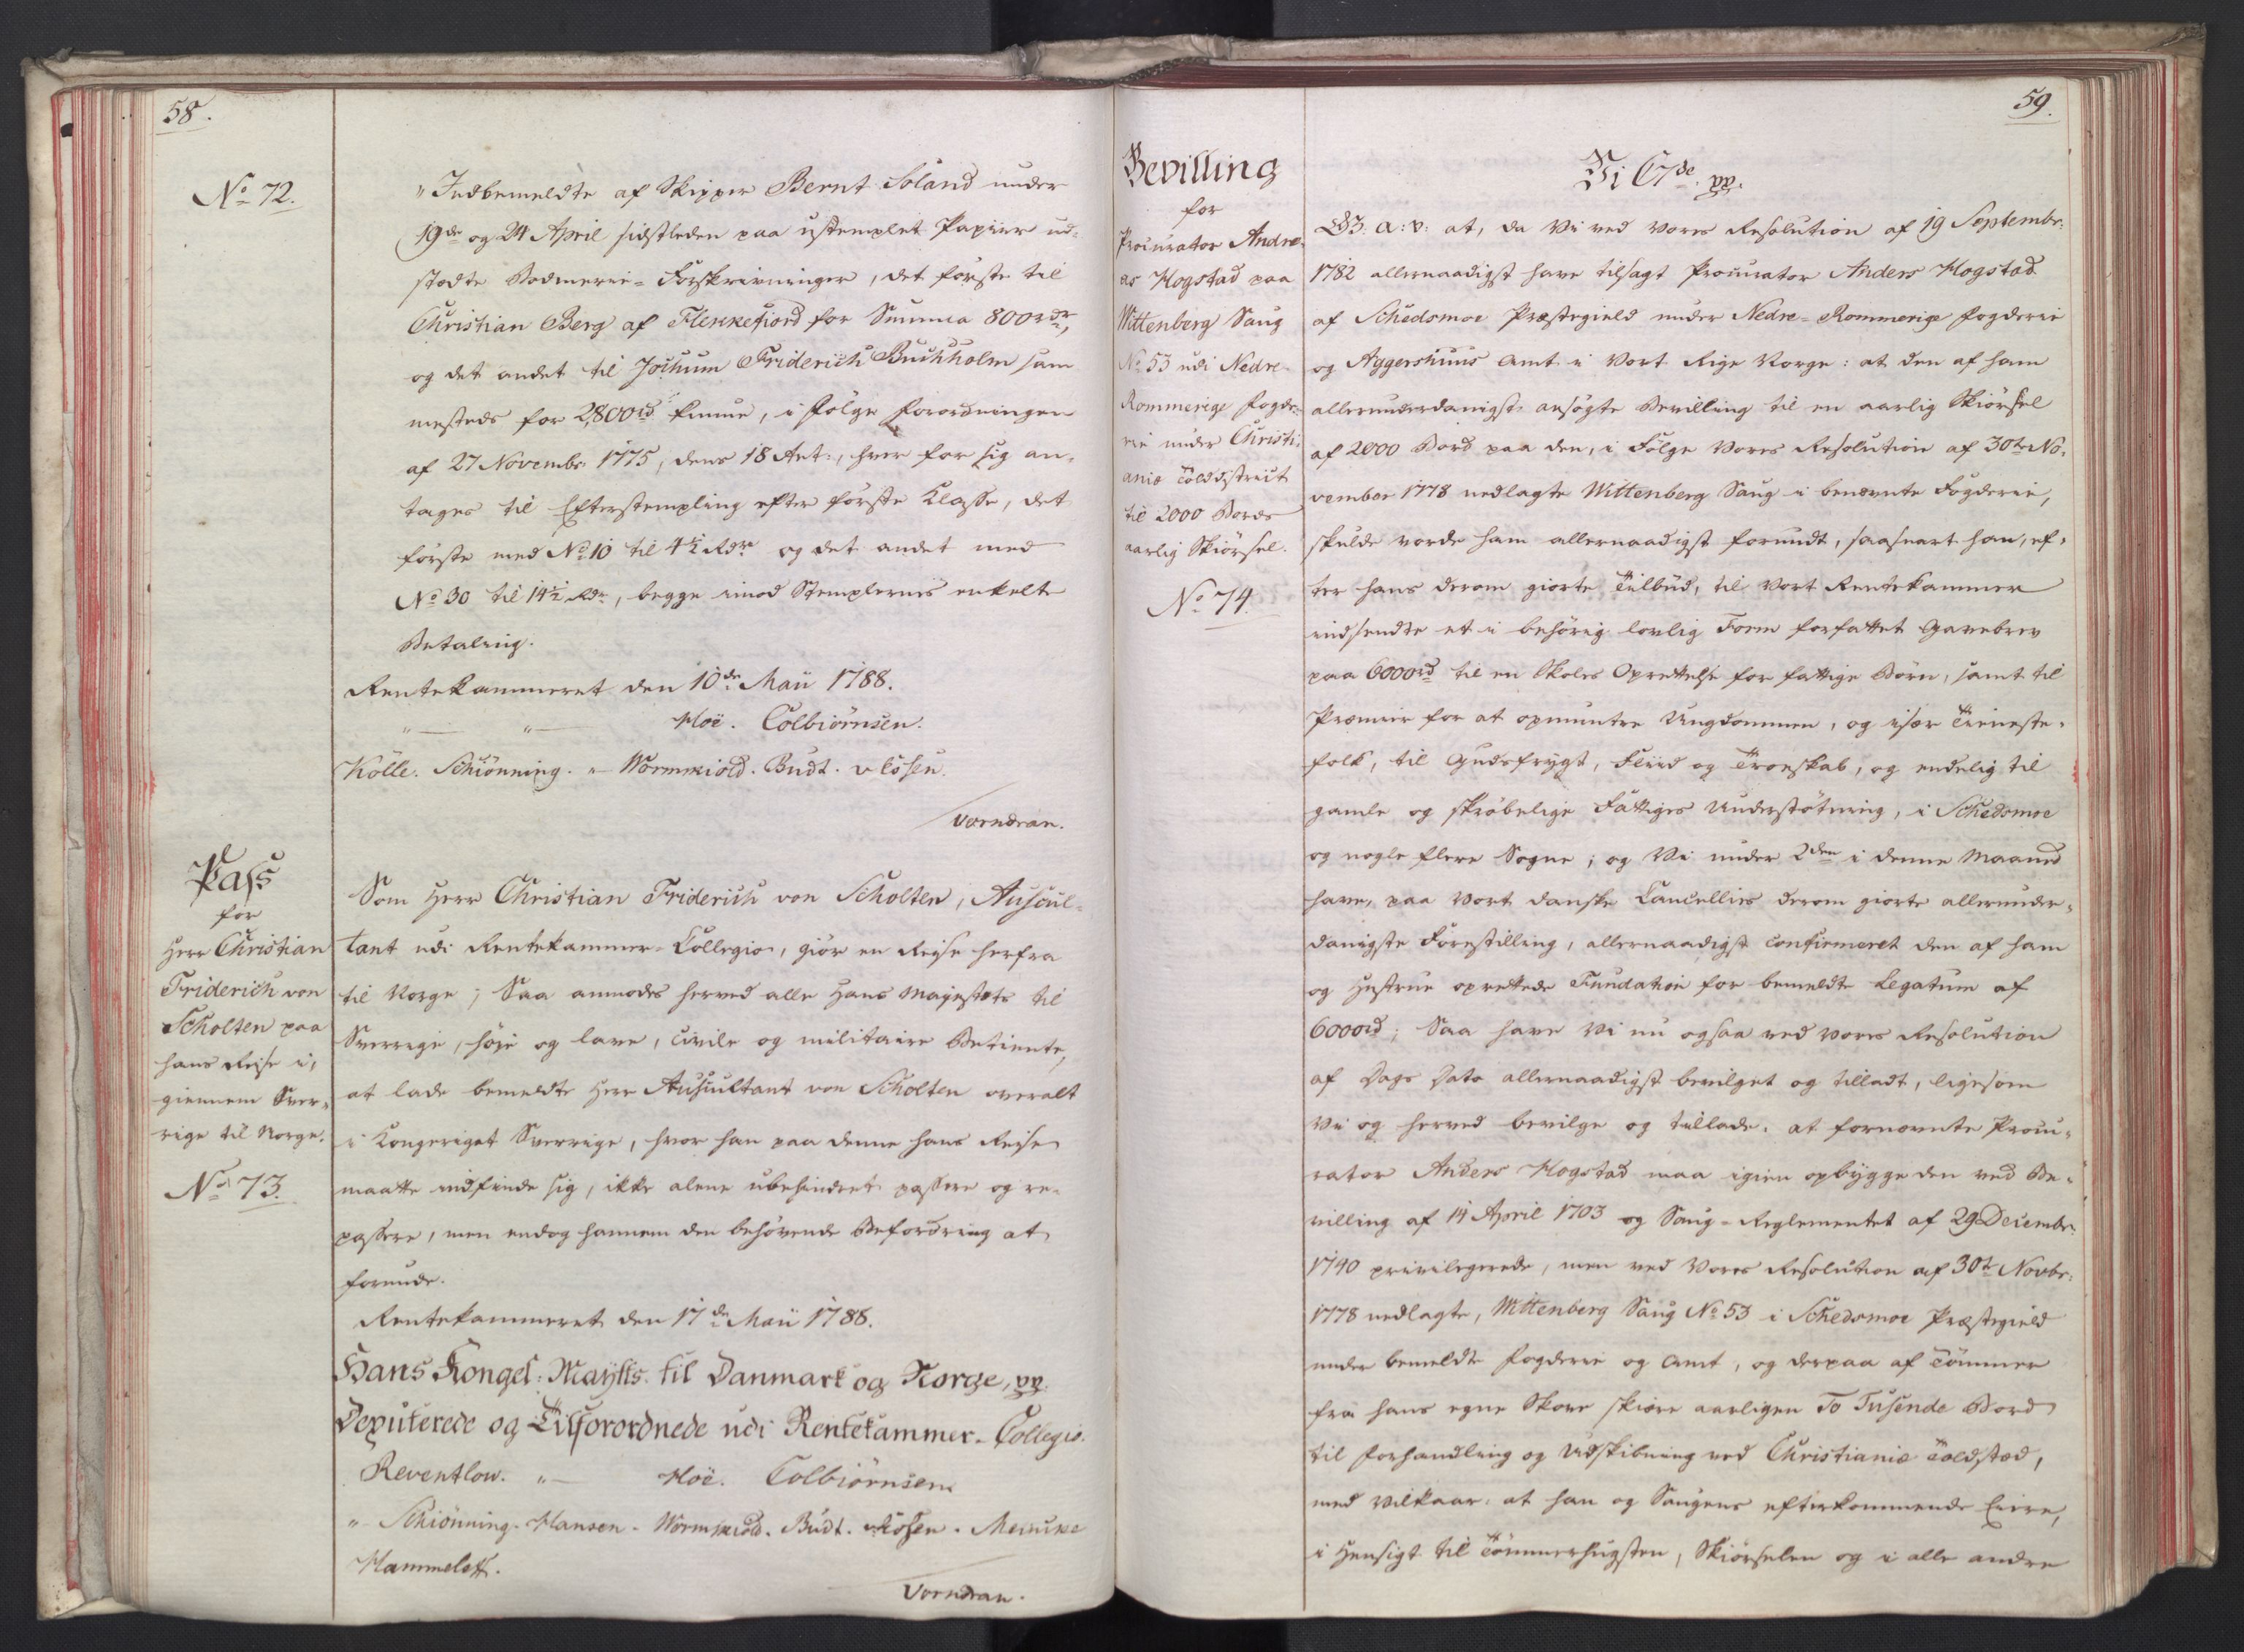 58.
No 72.
"Indbemeldte af Skipper Bernt Soland under
19de og 24 April sidstleden paa ustemplet Papiir ud-
stædte Bodmerie-Forskrivninger, det første til
Christian Berg af Flekkefiord for Summa 800rdr,
og det andet til Jochum Friderich Buchholm sam-
mesteds for 2,800rd Summe, i Følge Forordningen
af 27 Novembr: 1775, dens 18 Art:, hver for sig an-
tages til Efterstempling efter første Classe, det
første med No 10 til 4½ Rdr og det andet med
No 30 til 14½ Rdr, begge imod Stemplernes enkelte
Betaling.
Rentekammeret den 10de Maii 1788.
" — " — Hoë. Colbiørnsen.
Kölle. Schiönning. " Wormskiold. Budt. v Essen.
Vorndran.
Pass
for
Herr Christian
Friderich von
Scholten paa
hans Reise i-
giennem Sver-
rige til Norge.
No 73.
Som Herr Christian Friderich von Scholten, Auscul-
tant udi Rentekammer-Collegio, giør en Reise herfra
til Norge; Saa anmodes herved alle Hans Majestæts til
Sverrige, høje og lave, civile og militaire Betiente,
at lade bemeldte Herr Auscultant von Scholten overalt
i Kongeriget Sverrige, hvor han paa denne hans Reise
maatte indfinde sig, ikke alene ubehindret passere og re-
passere, men endog hannem den behøvende Befordring at
forunde.
Rentekammeret den 17de Maii 1788.
Hans Kongel: Maytts. til Danmark og Norge, pp.
Deputerede og Tilforordnede udi Rentekammer-Collegio.
Reventlow. " — Hoë. Colbiørnsen
" Schiönning. Hansen. Wormskiold. Budt. v Essen. Meincke
Hammeleff.
Vorndran.
59.
Bevilling
for
Procurator Andre-
as Hogstad paa
Wittenberg Saug
No 53 udi Nedre-
Rommerige Fogde-
rie under Christi-
aniæ Tolddistrict
til 2000 Bords
aarlig Skiørsel.
No 74.
Vi C7de. pp.
G: A: V: at, da Vi ved Vores Resolution af 19 Septembr:
1782 allernaadigst have tilsagt Procurator Anders Hogstad
af Schedsmoe Præstegield under Nedre-Rommerige Fogderie
og Aggershuus Amt i Vort Rige Norge: at den af ham
allerunderdanigst ansøgte Bevilling til en aarlig Skiørsel
af 2000 Bord paa den, i Følge Vores Resolution af 30te No-
vember 1778 nedlagte Wittenberg Saug i benævnte Fogderie,
skulde vorde ham allernaadigst forundt, saasnart han, ef-
ter hans derom giorte Tilbud, til Vort Rentekammer
indsendte et i behørig lovlig Form forfattet Gavebrev
paa 6000rd til en Skoles Oprettelse for fattige Børn, samt til
Præmier for at opmuntre Ungdommen, og især Tieneste-
folk, til Gudsfrygt, Fliid og Troeskab, og endelig til
gamle og skrøbelige Fattiges Understøtning, i Schedsmoe
og nogle flere Sogne; og Vi under 2den i denne Maaned
have, paa Vort danske Cancellies derom giorte allerunder-
danigste Forestilling, allernaadigst confirmeret den af ham
og Hustrue oprettede Fundation for bemeldte Legatum af
6000rd; Saa have Vi nu ogsaa ved Vores Resolution
af Dags Dato allernaadigst bevilget og tilladt, ligesom
Vi og herved bevilge og tillade: at fornævnte Procu-
rator Anders Hogstad maa igien opbygge den ved Be-
villing af 14 April 1703 og Saug-Reglementet af 29 Decembr:
1740 privilegerede, men ved Vores Resolution af 30te Novbr:
1778 nedlagte, Wittenberg Saug No 53 i Schedsmoe Præstegield
under bemeldte Fogderie og Amt, og derpaa af Tømmer
fra hans egne Skove skiære aarligen To Tusende Bord
til Forhandling og Udskibning ved Christianiæ Toldsted,
med Vilkaar: at han og Saugens efterkommende Eiere,
i Hensigt til Tømmerhugsten, Skiørselen og i alle andre